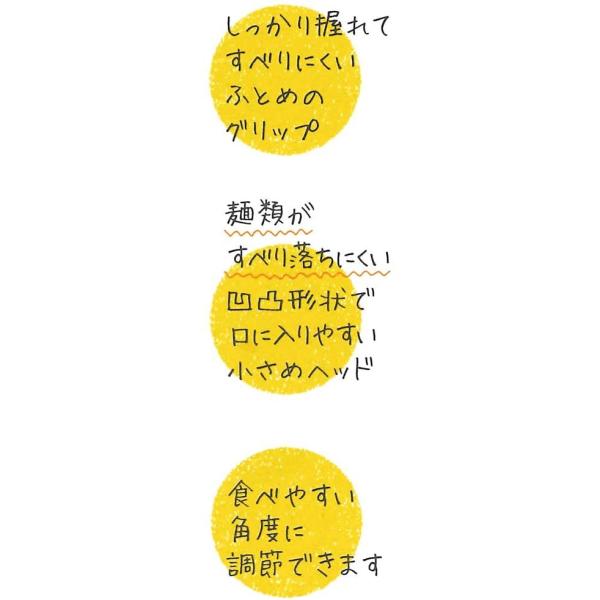 しっかり握れて
すべりにくい
ふとめの
グリップ
麺類が
すべり落ちにくい
凹凸形状で
口に入りやすい
小さめヘッド
食べやすい
角度に
調節できます